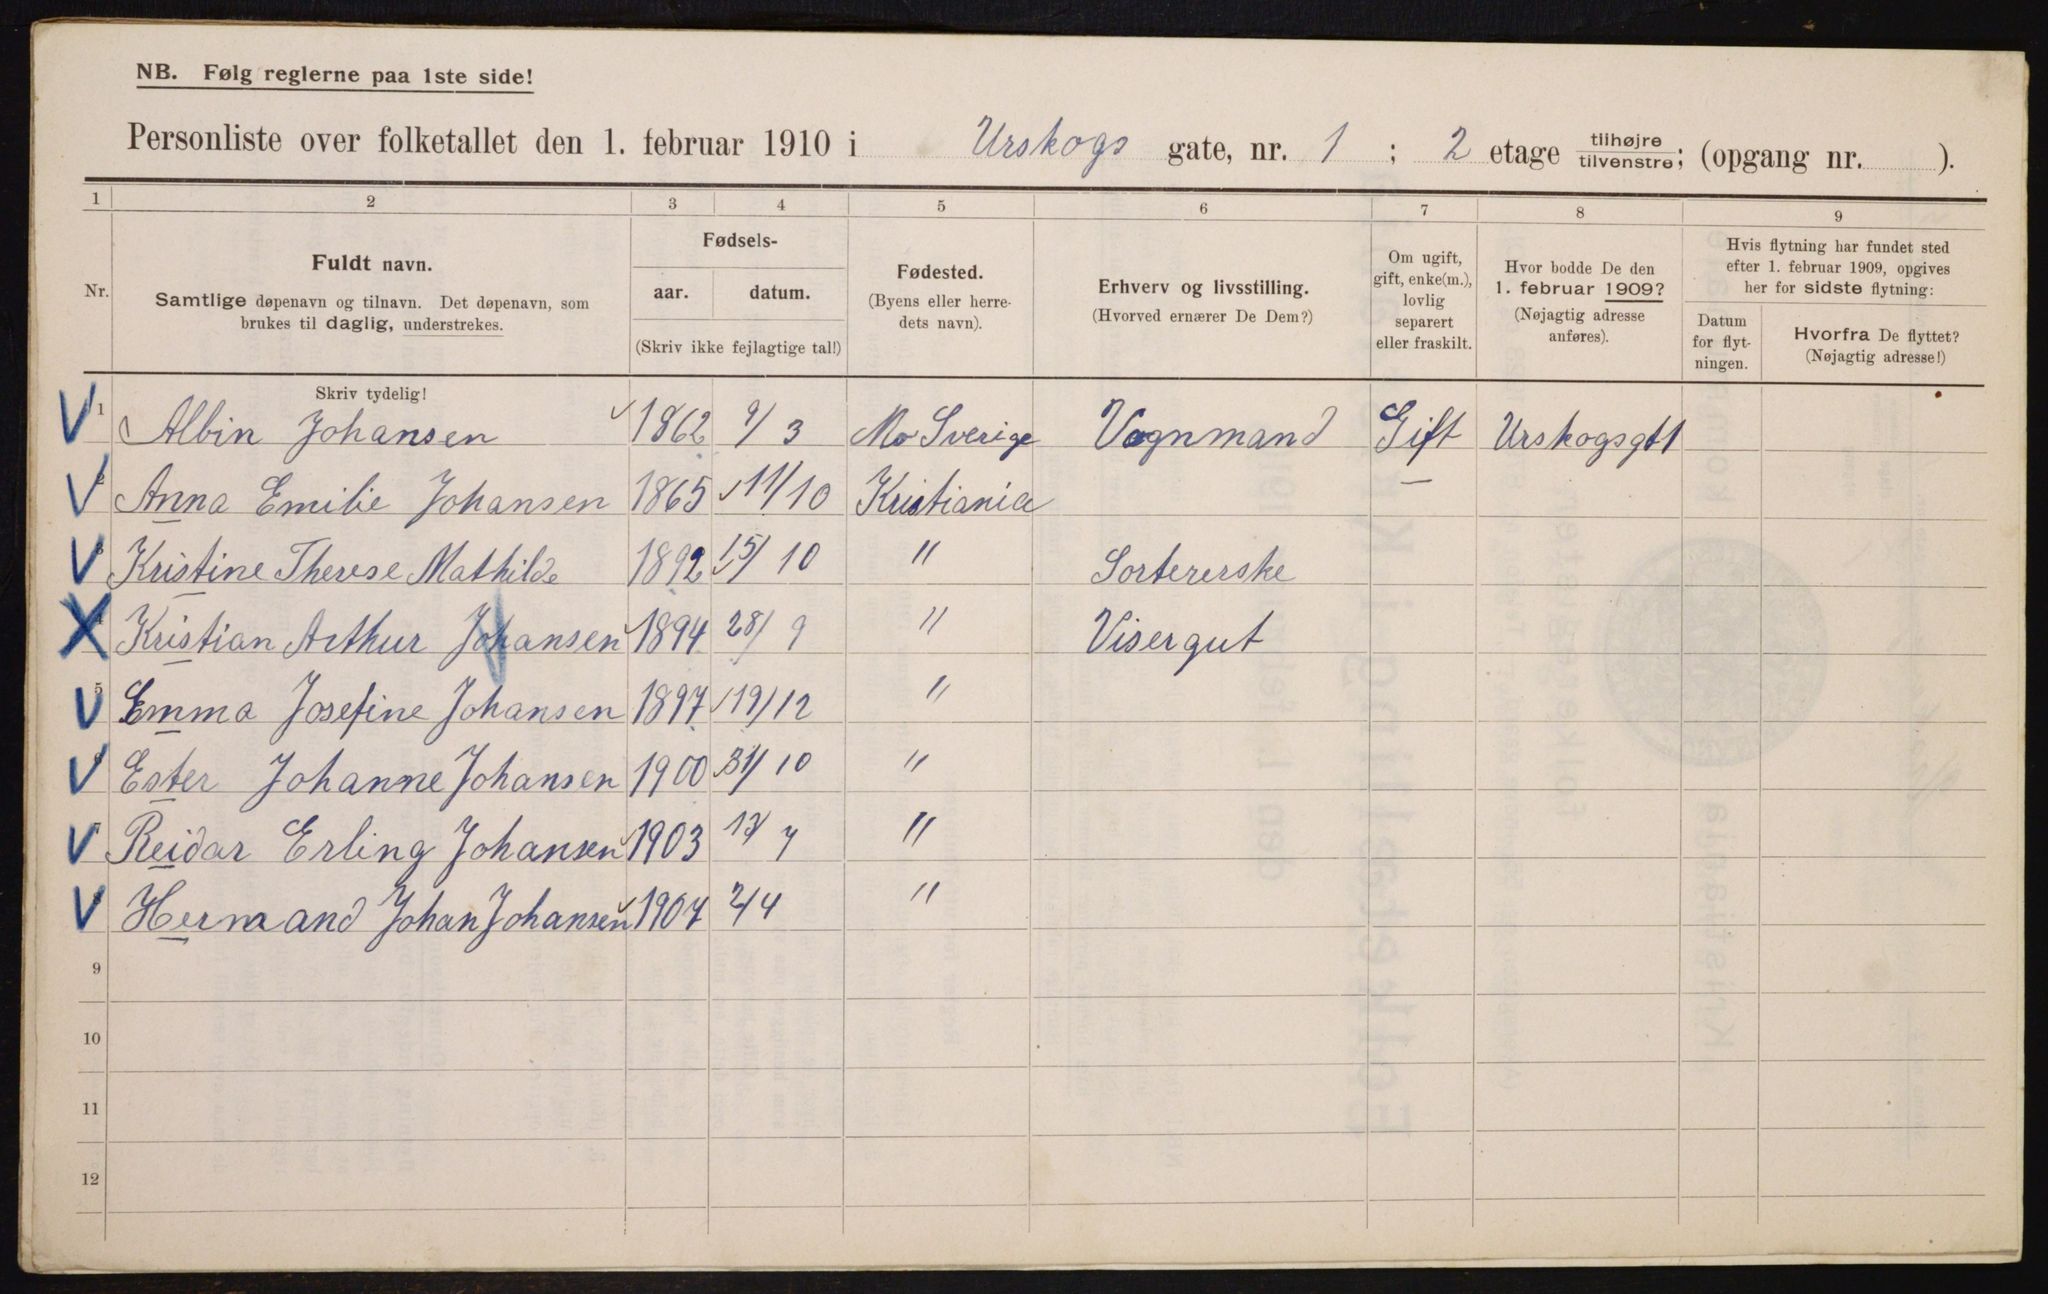 NB. Følg reglerne paa 1ste side!
Personliste over folketallet den 1. februar 1910 i Urskogs gate, nr. 1 ; 2 etage tilhøjre tilvenstre; (opgang nr. ).
1 2 3 4 5 6 7 8 9
Nr.
Fuldt navn.
Samtlige døpenavn og tilnavn. Det døpenavn, som
brukes til daglig, understrekes.
Fødsels-
aar. datum.
(Skriv ikke fejlagtige tal!)
Fødested.
(Byens eller herre-
dets navn).
Erhverv og livsstilling.
(Hvorved ernærer De Dem?)
Om ugift,
gift, enke(m.),
lovlig
separert
eller fraskilt.
Hvor bodde De den
1. februar 1909?
(Nøjagtig adresse
anføres).
Hvis flytning har fundet sted
efter 1. februar 1909, opgives
her for sidste flytning:
Datum
for flyt-
ningen.
Hvorfra De flyttet?
(Nøjagtig adresse!)
Skriv tydelig!
1 Albin Johansen 1862 9/3 Mo Sverige Vognmand Gift Urskogsgt 1
2 Anna Emilie Johansen 1865 11/10 Kristiania —
3 Kristine Therese Mathilde 1892 15/10 " Sortererske
4 Kristian Arthur Johansen 1894 28/9 " Visergut
5 Emma Josefine Johansen 1897 19/12 "
6 Ester Johanne Johansen 1900 31/10 "
7 Reidar Erling Johansen 1903 13/7 "
Hermand Johan Johansen 1907 2/4 "
9
10
11
12